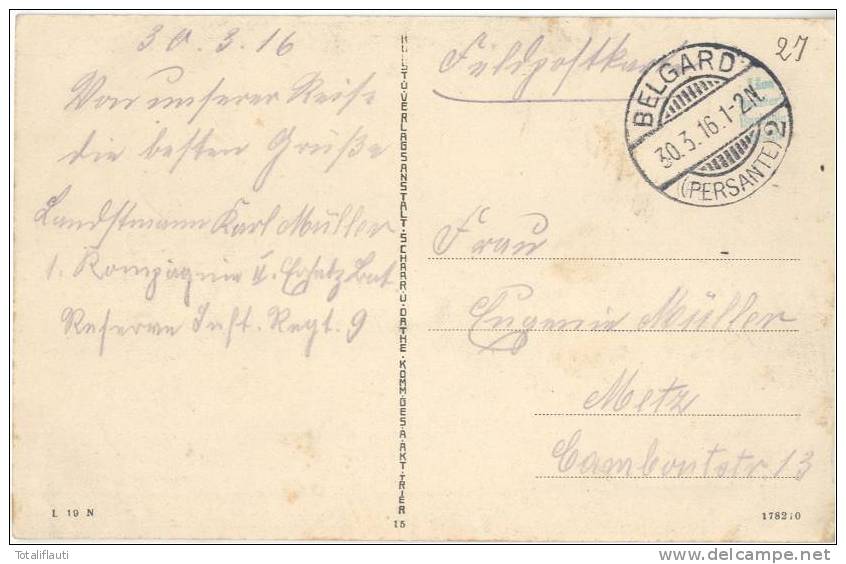 30.3.16
Von unserer Reise
die besten Grüße
Landstmann Karl Müller
1. Kompagnie II. Ersatz Bat.
Reserve Inft. Regt. 9
KUNST U. VERLAGSANSTALT · SCHAAR U. DATHE · KOMM. GES. A. AKT. TRIER
Feldpostkarte
27
BELGARD
30.3.16.1-2N.
(PERSANTE) 2
Frau
Eugenie Müller
Metz
Camboutstr. 13
L 19 N
15
178210
Totaliflauti
www.delcampe.net